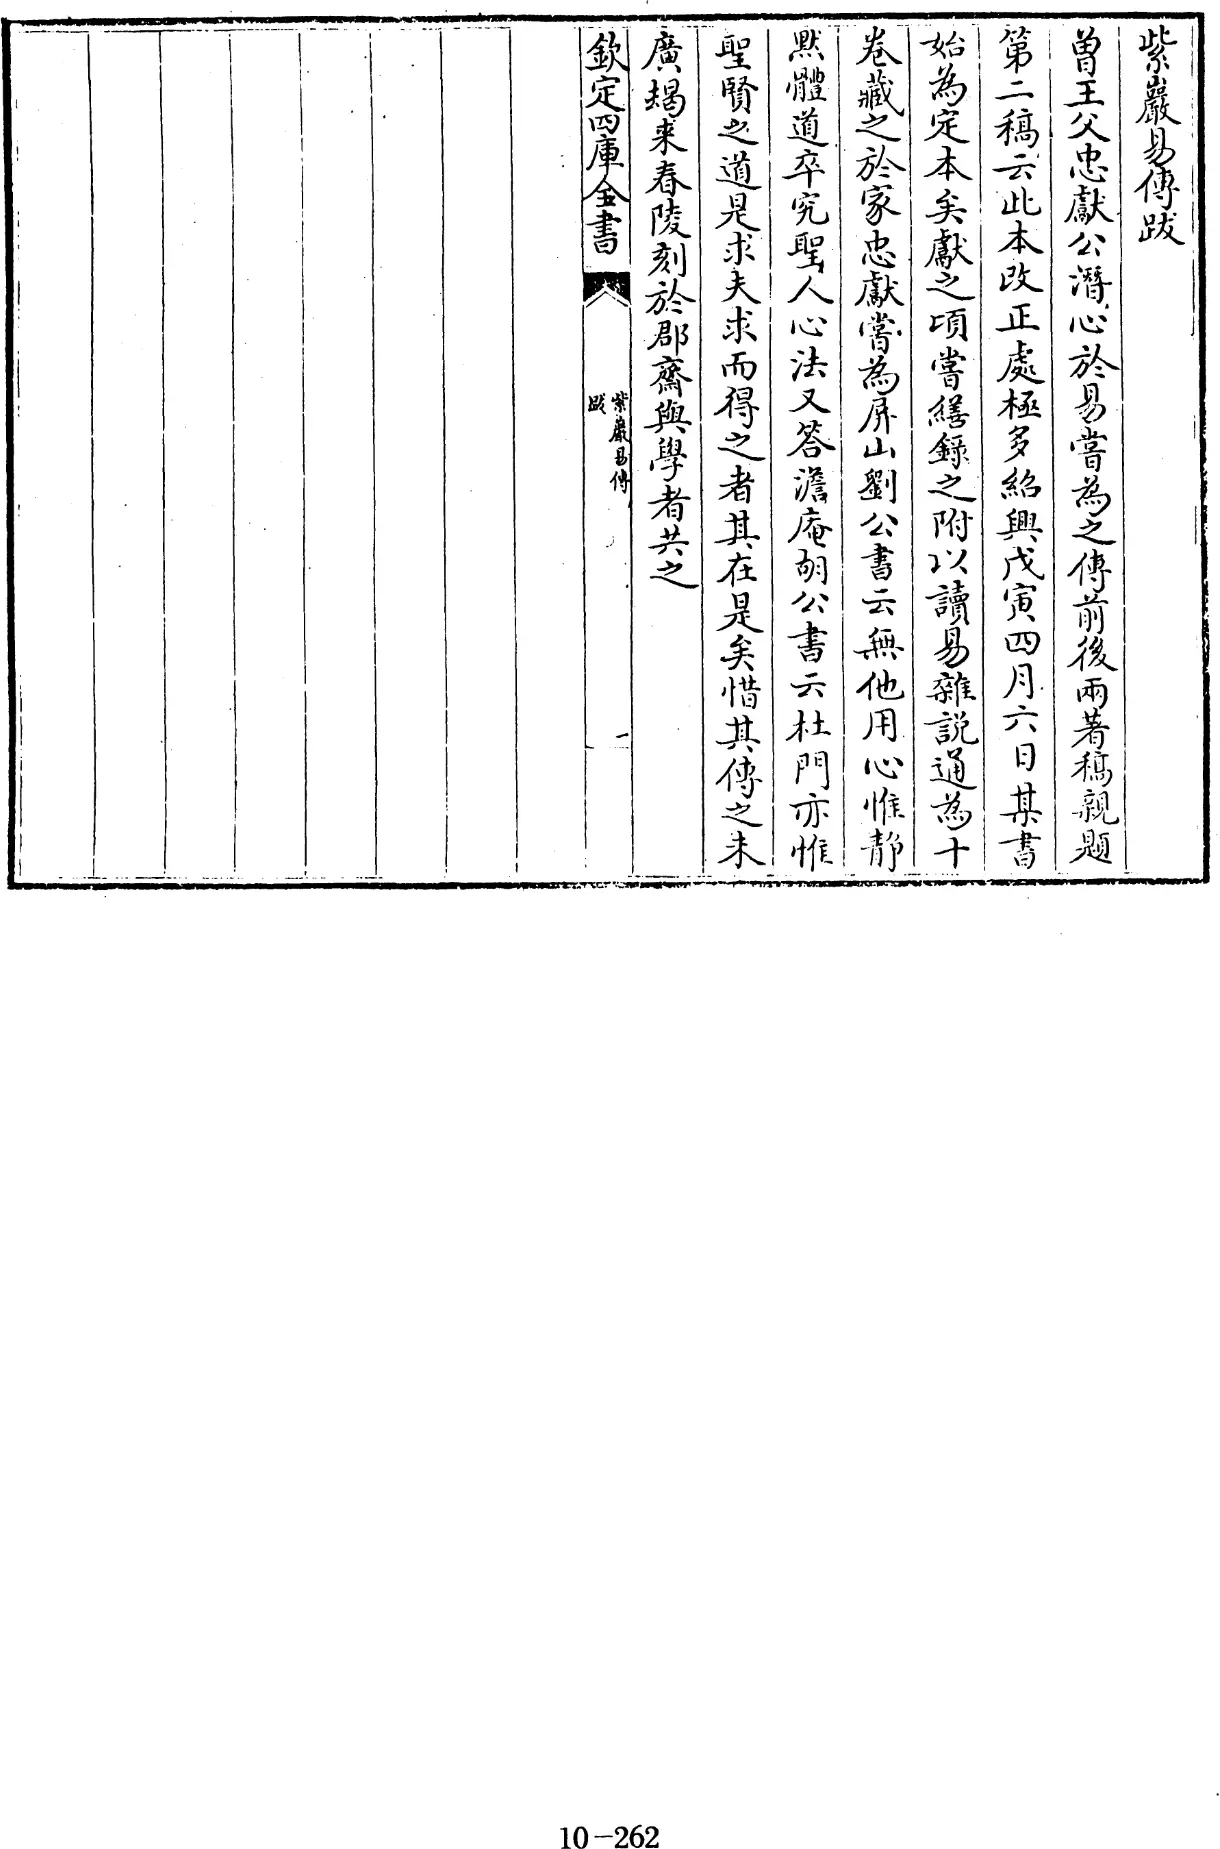 紫巖易傳跋
曾王父忠獻公潛心於易嘗為之傳前後兩著稿親題
第二稿云此本改正處極多紹興戊寅四月六日某書
始為定本矣獻之頃嘗繕錄之附以讀易雜說通為十
卷藏之於家忠獻嘗為屏山劉公書云無他用心惟靜
黙體道卒究聖人心法又答澹庵胡公書云杜門亦惟
聖賢之道是求夫求而得之者其在是矣惜其傳之未
廣朅來舂陵刻於郡齋與學者共之
欽定四庫全書
紫巖易傳
跋
一
10-262